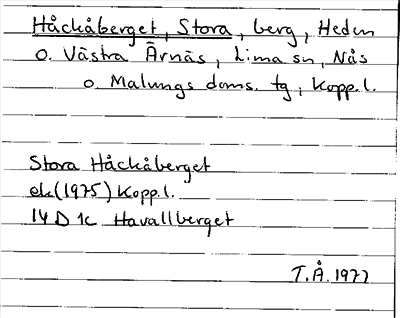 Håckåberget, Stora, berg, Heden
o. Västra Ärnäs, Lima sn, Nås
o. Malungs doms. tg, Kopp. l.
Stora Håckåberget
ek (1975) Kopp. l.
14 D 1c Havallberget
T.Å. 1977